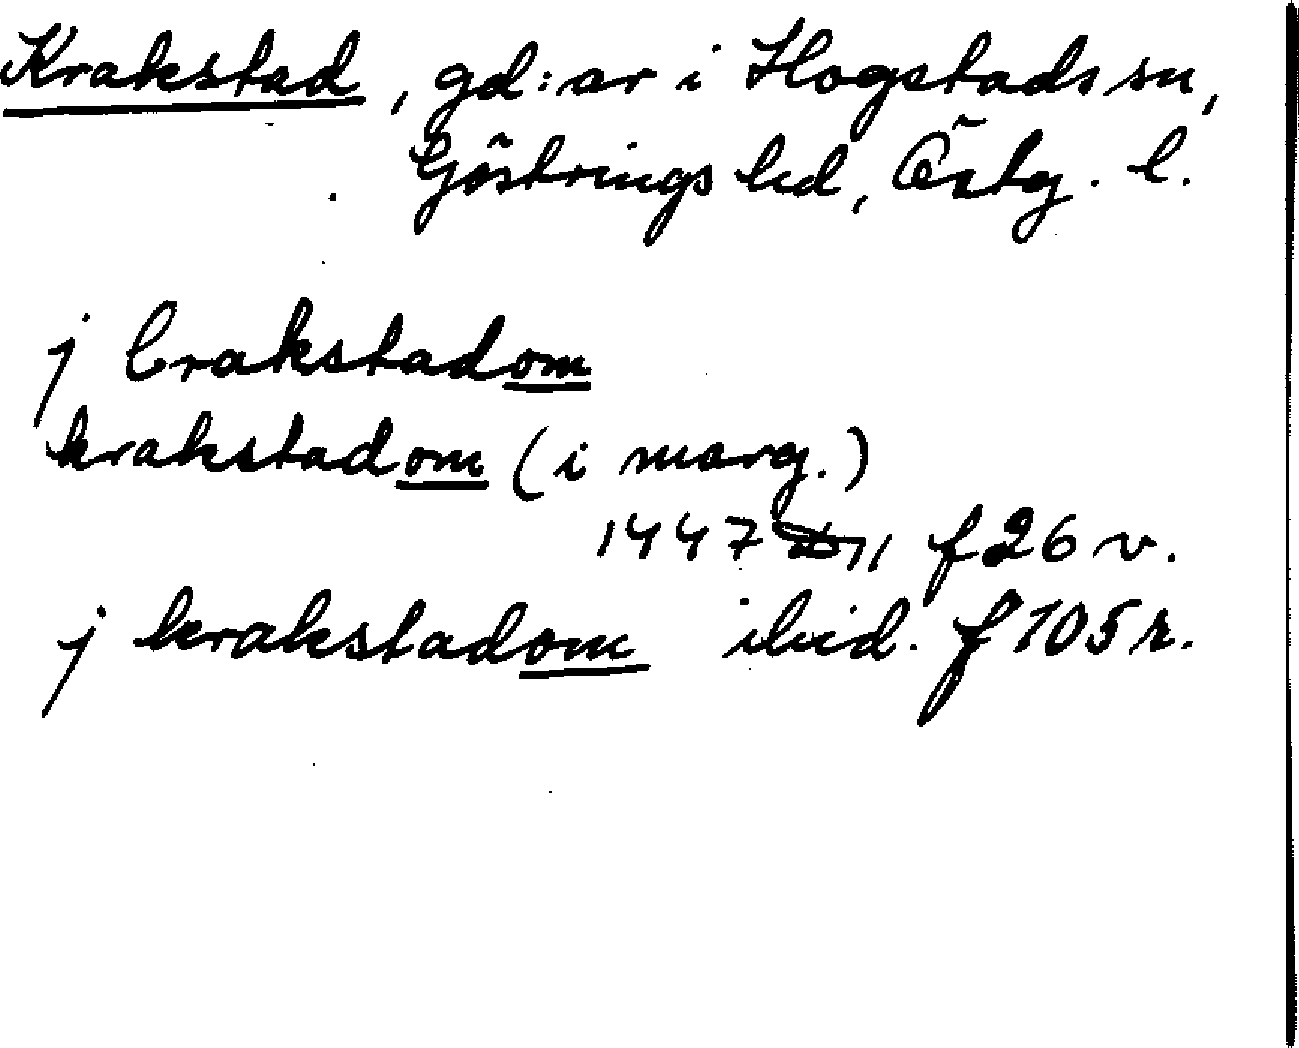 Krakstad, gd:ar i Hogstads sn,
Göstrings hd, Östg. l.
j Crakstadom
krakstadom (i marg.)
1447 f 26 v.
j krakstadom ibid. f 105 r.